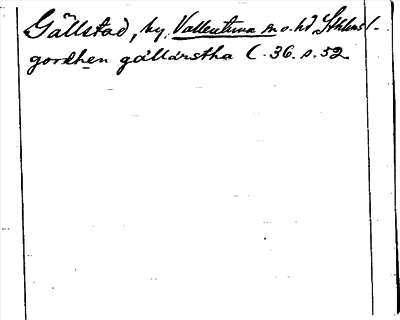 Gällstad, by, Vallentuna sn o. hd, Sthlms l.
gordhen gällärstha C. 36. s. 52